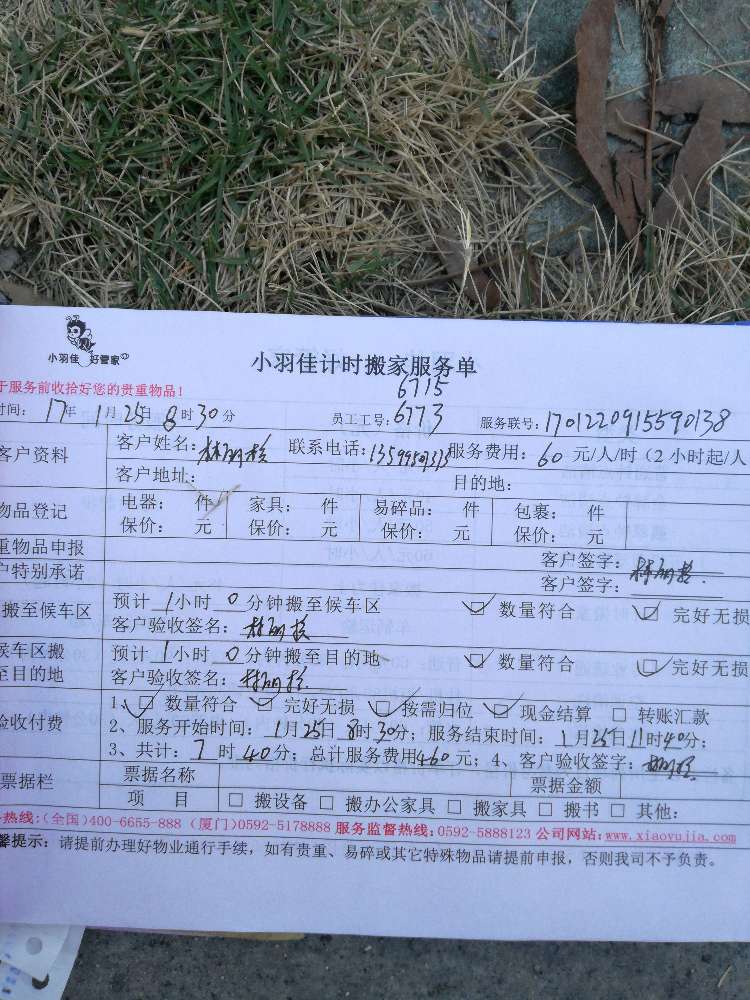 小羽佳 好管家
小羽佳计时搬家服务单
于服务前收拾好您的贵重物品!
6715
时间: 17年 1月25日 8时30分 员工工号: 6773 服务联号: 1701220915590138
客户资料 客户姓名: 联系电话: 服务费用: 60 元/人/时(2小时起/人
客户地址: 目的地:
物品登记 电器: 件 家具: 件 易碎品: 件 包裹: 件
保价: 元 保价: 元 保价: 元 保价: 元
重物品申报 客户签字:
户特别承诺 客户签字:
搬至候车区 预计 1小时 0分钟搬至候车区 数量符合 完好无损
客户验收签名:
候车区搬 预计 1小时 0分钟搬至目的地 数量符合 完好无损
至目的地 客户验收签名:
验收付费 1、 数量符合 完好无损 按需归位 现金结算 转账汇款
2、服务开始时间: 1月25日8时30分; 服务结束时间: 1月25日11时40分;
3、共计: 7 时 40分; 总计服务费用460元; 4、客户验收签字:
票据栏 票据名称 票据金额
项 目 搬设备 搬办公家具 搬家具 搬书 其他:
热线:(全国)400-6655-888 (厦门)0592-5178888 服务监督热线:0592-5888123 公司网站:www.xiaoyujia.com
馨提示: 请提前办理好物业通行手续, 如有贵重、易碎或其它特殊物品请提前申报, 否则我司不予负责。